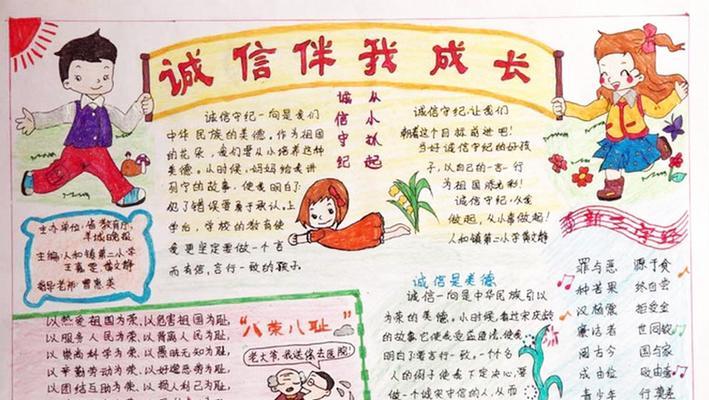 诚信伴我成长
诚信守纪
从小抓起
诚信守纪一向是我们
中华民族的美德。作为祖国
的花朵,我们要从小培养这种
美德。从时候,妈妈给我讲
列宁的故事,使我明白了
犯了错误要勇于承认。上
学后,学校的教育使
我更坚定要做一个言
而有信,言行一致的孩子。
诚信守纪,让我们
朝着这个目标前进吧!
争好诚信守纪的好孩
子,以自己的一言一行
为祖国添光彩!
诚信守纪,从我
做起,从小事做起!
人和镇第二小学 黄文静
主办单位:省教育厅、
羊城晚报
主编:人和镇第二小学
黄文静
指导老师:曹惠英
李新三字经
罪与恶 源于贪
种苦果 终自尝
汉杨震 拒受金
廉洁者 世同钦
阅古今 国与家
成由俭 败由奢
青少年
诚信是美德
诚信一向是中华民族引以
为荣的美德。小时候,看过宋庆龄
的故事,它使我受益匪浅,使我
明白了要言行一致。一个名
人的例子使我下定决心,要
做一个诚实守信的人,从而
“八荣八耻”
以热爱祖国为荣,以危害祖国为耻,
以服务人民为荣,以背离人民为耻,
以崇尚科学为荣,以愚昧无知为耻,
以辛勤劳动为荣,以好逸恶劳为耻,
以团结互助为荣,以损人利己为耻,
老大爷,我送你去医院!